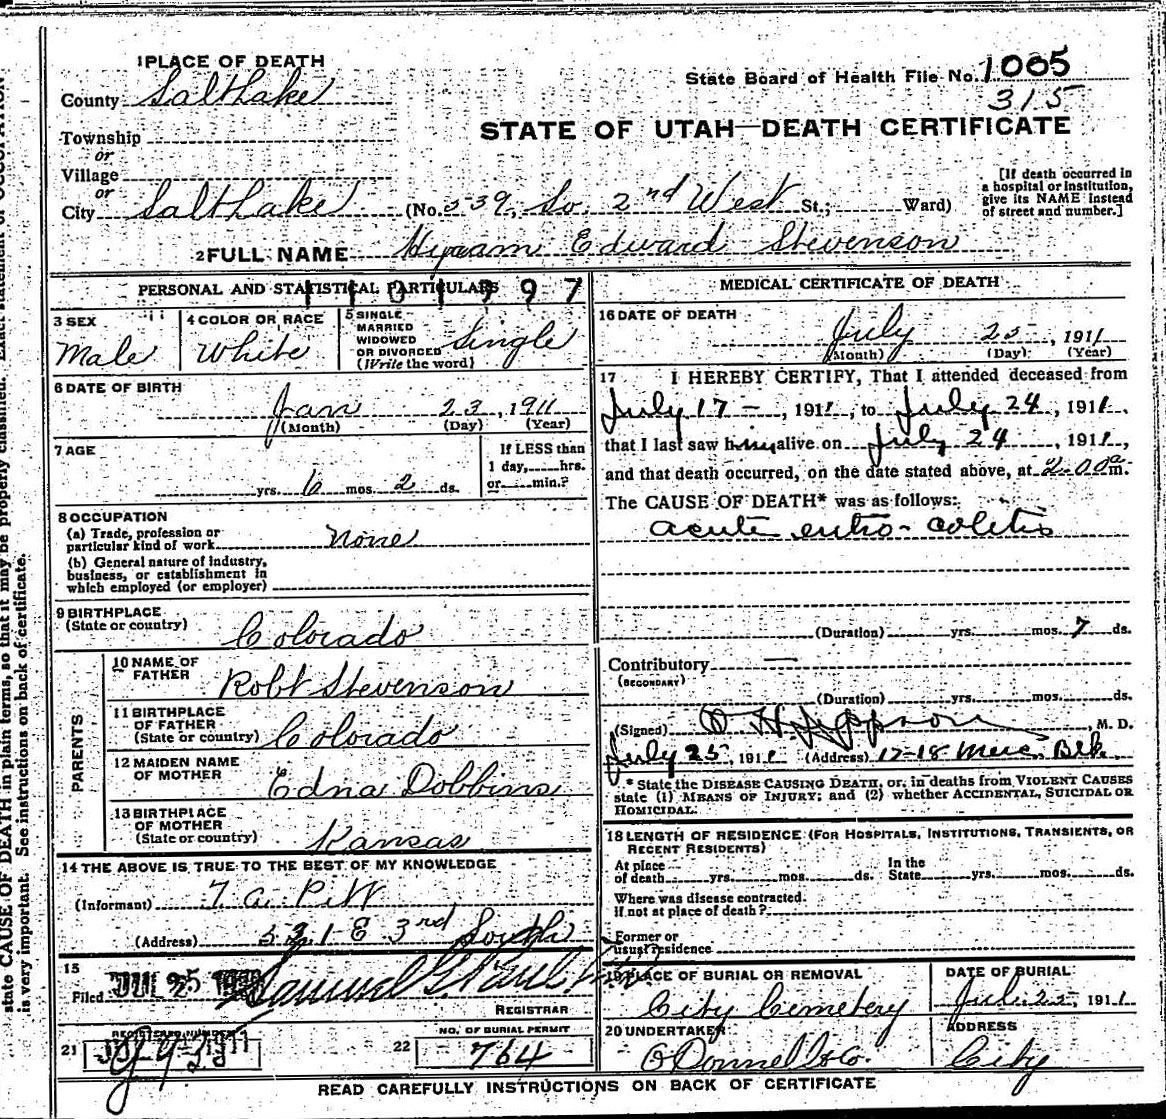 state CAUSE OF DEATH in plain terms, so that it may be properly classified. Exact statement of OCCUPATION
is very important. See instructions on back of certificate.
1 PLACE OF DEATH
County Salt Lake
Township
or
Village
or
City Salt Lake (No. 539, So. 2nd West St.; Ward)
State Board of Health File No. 1005
315
STATE OF UTAH—DEATH CERTIFICATE
[If death occurred in
a hospital or institution,
give its NAME instead
of street and number.]
2 FULL NAME Hyram Edward Stevenson
PERSONAL AND STATISTICAL PARTICULARS
3 SEX
Male
4 COLOR OR RACE
White
5 SINGLE
MARRIED
WIDOWED
OR DIVORCED
(Write the word)
Single
6 DATE OF BIRTH
Jan 23, 1911
(Month) (Day) (Year)
7 AGE
yrs. 6 mos. 2 ds.
If LESS than
1 day, hrs.
or min.?
8 OCCUPATION
(a) Trade, profession or
particular kind of work None
(b) General nature of industry,
business, or establishment in
which employed (or employer)
9 BIRTHPLACE
(State or country)
Colorado
PARENTS
10 NAME OF
FATHER
Robt Stevenson
11 BIRTHPLACE
OF FATHER
(State or country) Colorado
12 MAIDEN NAME
OF MOTHER
Edna Dobbins
13 BIRTHPLACE
OF MOTHER
(State or country) Kansas
14 THE ABOVE IS TRUE TO THE BEST OF MY KNOWLEDGE
(Informant)
(Address) E 3rd South
15
Filed JUL 25
REGISTRAR
REGISTERED NUMBER
21
NO. OF BURIAL PERMIT
22 764
MEDICAL CERTIFICATE OF DEATH
16 DATE OF DEATH
July 25, 1911
(Month) (Day) (Year)
17 I HEREBY CERTIFY, That I attended deceased from
July 17 -, 1911, to July 24, 1911,
that I last saw him alive on July 24, 1911,
and that death occurred, on the date stated above, at 2-00 a m.
The CAUSE OF DEATH* was as follows:
acute entro-colitis
(Duration) yrs. mos. 7 ds.
Contributory —
(SECONDARY)
(Duration) yrs. mos. ds.
(Signed) M. D.
July 25, 1911 (Address) 17-18 Merc. Blk.
* State the DISEASE CAUSING DEATH, or, in deaths from VIOLENT CAUSES
state (1) MEANS OF INJURY; and (2) whether ACCIDENTAL, SUICIDAL OR
HOMICIDAL.
18 LENGTH OF RESIDENCE (FOR HOSPITALS, INSTITUTIONS, TRANSIENTS, OR
RECENT RESIDENTS)
At place
of death yrs. mos. ds.
In the
State yrs. mos. ds.
Where was disease contracted.
if not at place of death?
Former or
usual residence
19 PLACE OF BURIAL OR REMOVAL
City Cemetery
DATE OF BURIAL
Jul. 25, 1911
20 UNDERTAKER
O'Donnell & Co.
ADDRESS
City
READ CAREFULLY INSTRUCTIONS ON BACK OF CERTIFICATE